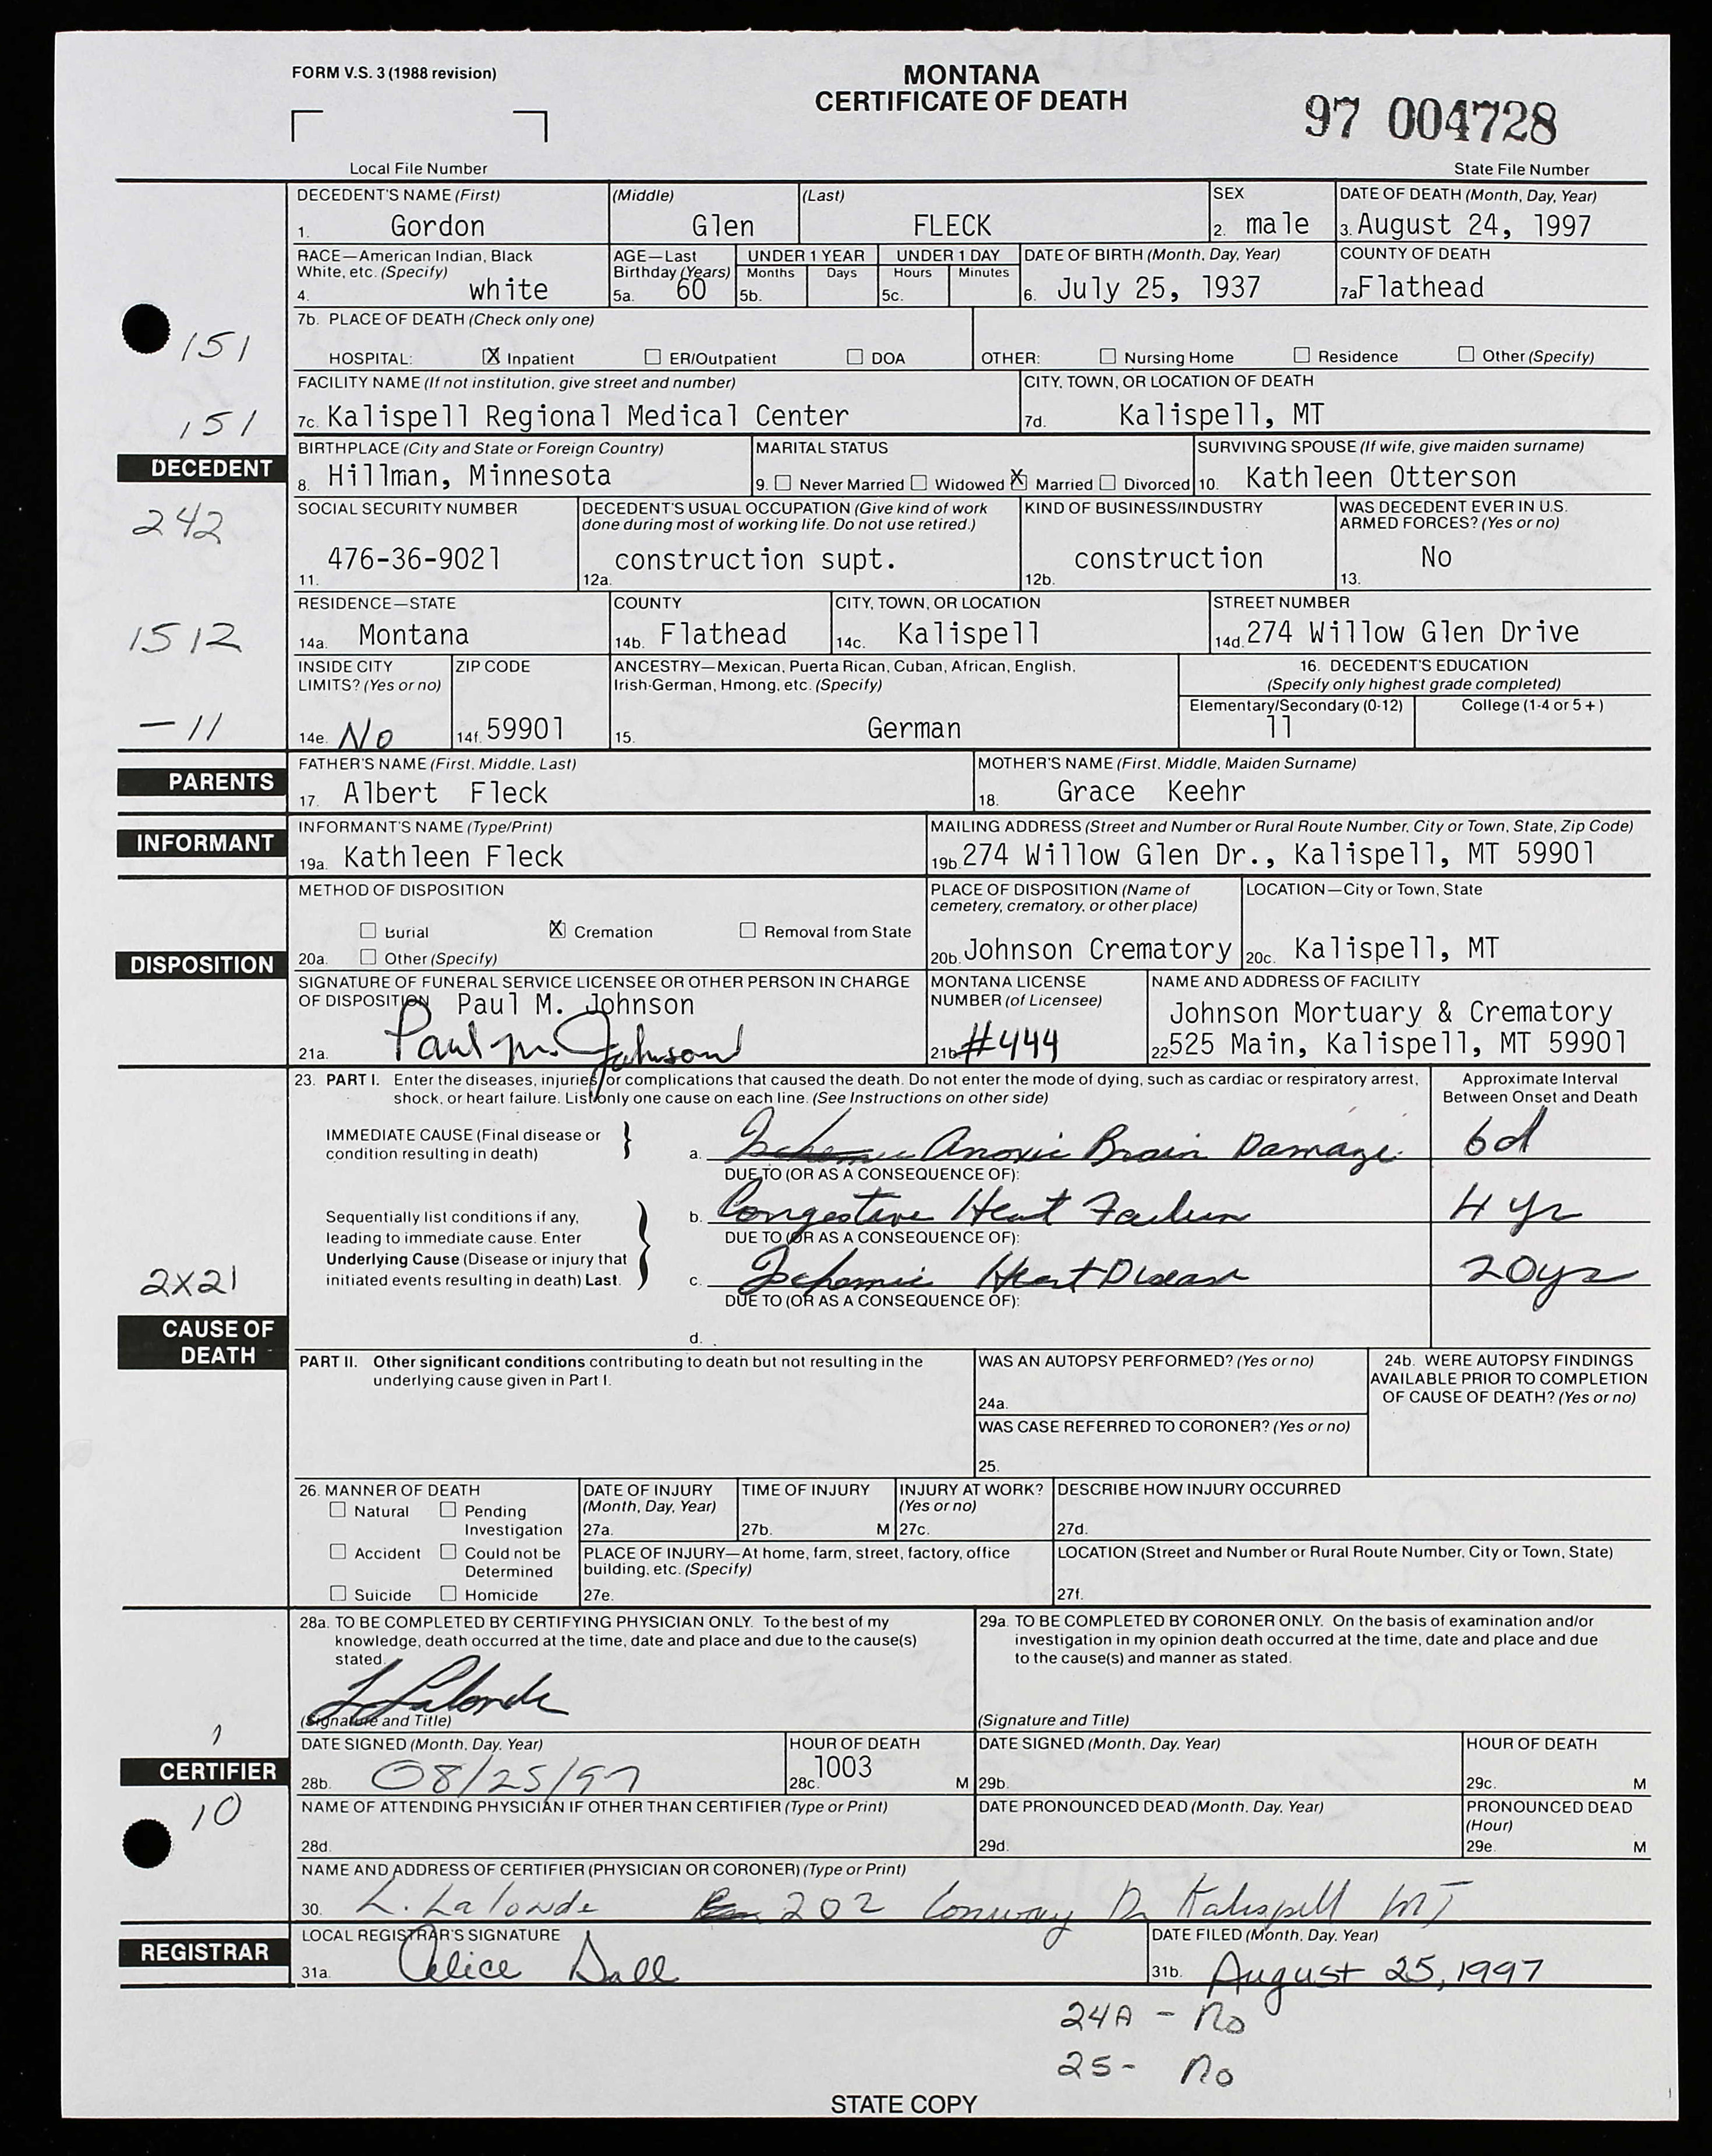 FORM V.S. 3 (1988 revision)
MONTANA
CERTIFICATE OF DEATH
97 004728
Local File Number
State File Number
DECEDENT'S NAME (First) (Middle) (Last) SEX DATE OF DEATH (Month, Day, Year)
1. Gordon Glen FLECK 2. male 3. August 24, 1997
RACE—American Indian, Black White, etc. (Specify)
4. white
AGE—Last Birthday (Years)
5a. 60
UNDER 1 YEAR
Months Days
5b.
UNDER 1 DAY
Hours Minutes
5c.
DATE OF BIRTH (Month, Day, Year)
6. July 25, 1937
COUNTY OF DEATH
7a Flathead
7b. PLACE OF DEATH (Check only one)
151
HOSPITAL: X Inpatient ER/Outpatient DOA OTHER: Nursing Home Residence Other (Specify)
FACILITY NAME (If not institution, give street and number)
7c. Kalispell Regional Medical Center
CITY, TOWN, OR LOCATION OF DEATH
7d. Kalispell, MT
151
DECEDENT
BIRTHPLACE (City and State or Foreign Country)
8. Hillman, Minnesota
MARITAL STATUS
9. Never Married Widowed X Married Divorced
SURVIVING SPOUSE (If wife, give maiden surname)
10. Kathleen Otterson
242
SOCIAL SECURITY NUMBER
476-36-9021
11.
DECEDENT'S USUAL OCCUPATION (Give kind of work
done during most of working life. Do not use retired.)
construction supt.
12a.
KIND OF BUSINESS/INDUSTRY
construction
12b.
WAS DECEDENT EVER IN U.S.
ARMED FORCES? (Yes or no)
No
13.
1512
RESIDENCE—STATE
14a. Montana
COUNTY
14b. Flathead
CITY, TOWN, OR LOCATION
14c. Kalispell
STREET NUMBER
14d. 274 Willow Glen Drive
INSIDE CITY
LIMITS? (Yes or no)
14e. No
ZIP CODE
14f. 59901
ANCESTRY—Mexican, Puerta Rican, Cuban, African, English,
Irish-German, Hmong, etc. (Specify)
15. German
16. DECEDENT'S EDUCATION
(Specify only highest grade completed)
Elementary/Secondary (0-12) College (1-4 or 5+)
11
- 11
PARENTS
FATHER'S NAME (First, Middle, Last)
17. Albert Fleck
MOTHER'S NAME (First, Middle, Maiden Surname)
18. Grace Keehr
INFORMANT
INFORMANT'S NAME (Type/Print)
19a. Kathleen Fleck
MAILING ADDRESS (Street and Number or Rural Route Number, City or Town, State, Zip Code)
19b. 274 Willow Glen Dr., Kalispell, MT 59901
DISPOSITION
METHOD OF DISPOSITION
Burial X Cremation Removal from State
20a. Other (Specify)
PLACE OF DISPOSITION (Name of
cemetery, crematory, or other place)
20b. Johnson Crematory
LOCATION—City or Town, State
20c. Kalispell, MT
SIGNATURE OF FUNERAL SERVICE LICENSEE OR OTHER PERSON IN CHARGE
OF DISPOSITION Paul M. Johnson
21a. Paul M. Johnson
MONTANA LICENSE
NUMBER (of Licensee)
21b #444
NAME AND ADDRESS OF FACILITY
Johnson Mortuary & Crematory
22. 525 Main, Kalispell, MT 59901
23. PART I. Enter the diseases, injuries, or complications that caused the death. Do not enter the mode of dying, such as cardiac or respiratory arrest,
shock, or heart failure. List only one cause on each line. (See Instructions on other side)
Approximate Interval
Between Onset and Death
IMMEDIATE CAUSE (Final disease or
condition resulting in death)
a. Anoxic Brain Damage 6d
DUE TO (OR AS A CONSEQUENCE OF):
Sequentially list conditions if any,
leading to immediate cause. Enter
Underlying Cause (Disease or injury that
initiated events resulting in death) Last.
b. Congestive Heart Failure 4 yr
DUE TO (OR AS A CONSEQUENCE OF):
c. Ischemic Heart Disease 20yr
DUE TO (OR AS A CONSEQUENCE OF):
d.
2X21
CAUSE OF
DEATH
PART II. Other significant conditions contributing to death but not resulting in the
underlying cause given in Part I.
WAS AN AUTOPSY PERFORMED? (Yes or no)
24a.
24b. WERE AUTOPSY FINDINGS
AVAILABLE PRIOR TO COMPLETION
OF CAUSE OF DEATH? (Yes or no)
WAS CASE REFERRED TO CORONER? (Yes or no)
25.
26. MANNER OF DEATH
Natural Pending
Investigation
Accident Could not be
Determined
Suicide Homicide
DATE OF INJURY
(Month, Day, Year)
27a.
TIME OF INJURY
27b. M
INJURY AT WORK?
(Yes or no)
27c.
DESCRIBE HOW INJURY OCCURRED
27d.
PLACE OF INJURY—At home, farm, street, factory, office
building, etc. (Specify)
27e.
LOCATION (Street and Number or Rural Route Number, City or Town, State)
27f.
28a. TO BE COMPLETED BY CERTIFYING PHYSICIAN ONLY. To the best of my
knowledge, death occurred at the time, date and place and due to the cause(s)
stated.
L Lalonde
(Signature and Title)
29a. TO BE COMPLETED BY CORONER ONLY. On the basis of examination and/or
investigation in my opinion death occurred at the time, date and place and due
to the cause(s) and manner as stated.
(Signature and Title)
1
CERTIFIER
10
DATE SIGNED (Month, Day, Year)
28b. 08/25/97
HOUR OF DEATH
1003
28c. M
DATE SIGNED (Month, Day, Year)
29b.
HOUR OF DEATH
29c. M
NAME OF ATTENDING PHYSICIAN IF OTHER THAN CERTIFIER (Type or Print)
28d.
DATE PRONOUNCED DEAD (Month, Day, Year)
29d.
PRONOUNCED DEAD
(Hour)
29e. M
NAME AND ADDRESS OF CERTIFIER (PHYSICIAN OR CORONER) (Type or Print)
30. L. Lalonde 202 Conway Dr Kalispell MT
REGISTRAR
LOCAL REGISTRAR'S SIGNATURE
31a. Alice Dall
DATE FILED (Month, Day, Year)
31b. August 25, 1997
24A - No
25- No
STATE COPY